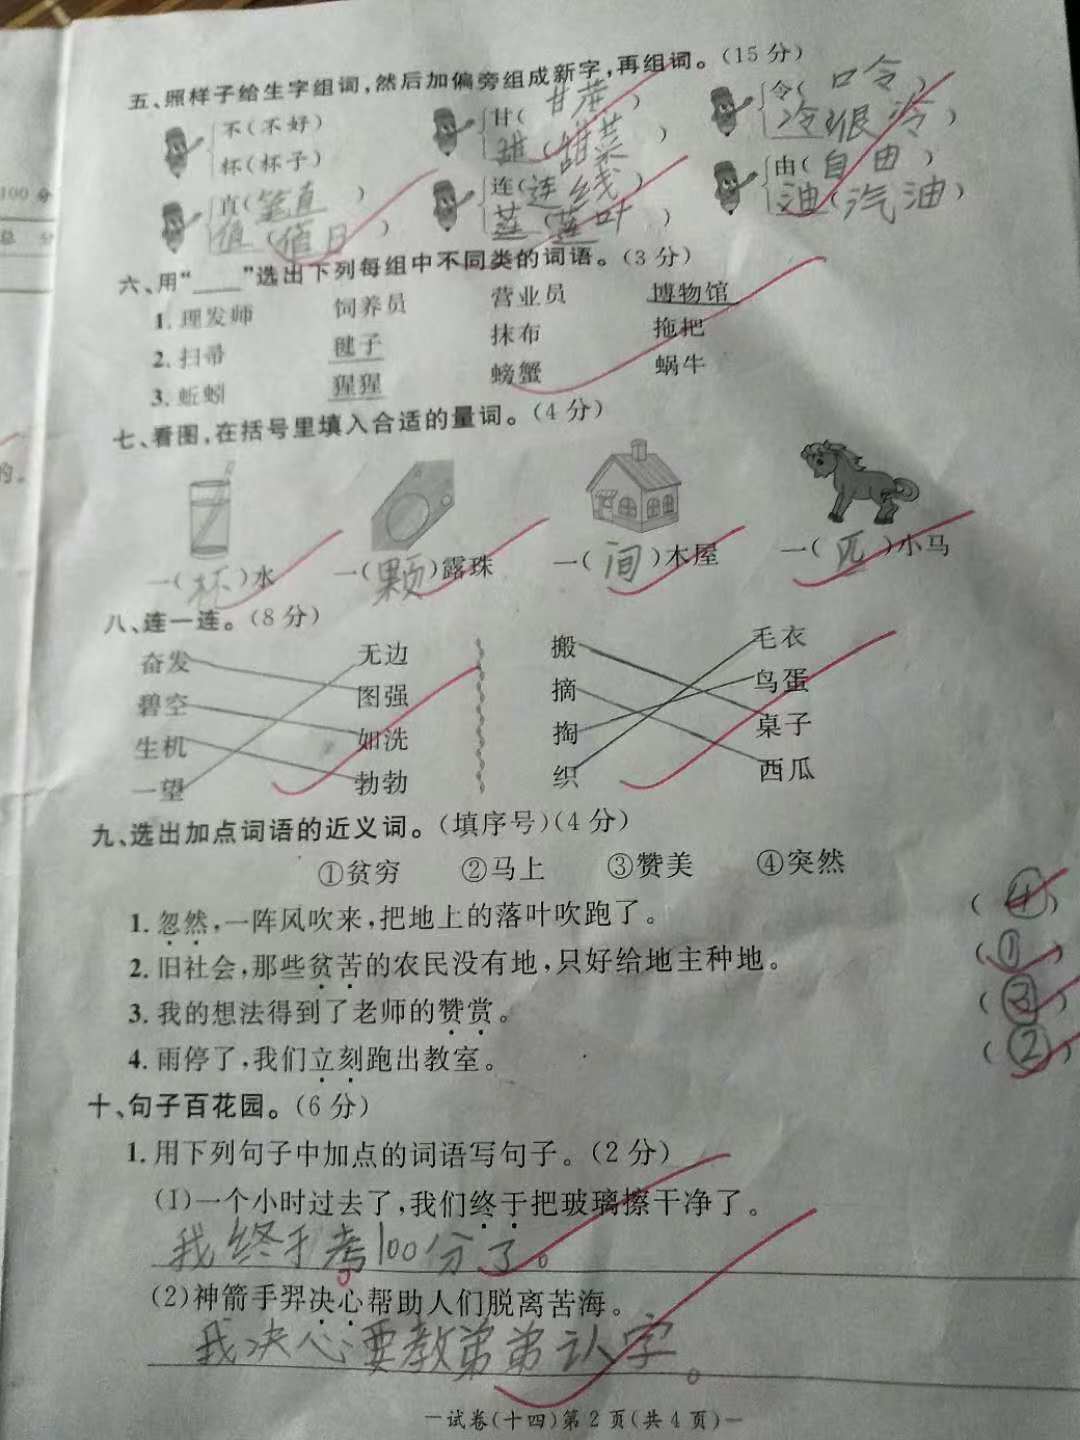 五、照样子给生字组词,然后加偏旁组成新字,再组词。(15分)
不(不好) 甘(甘蔗) 令(口令)
杯(杯子) 甜(甜菜) 冷(很冷)
直(笔直) 连(连线) 由(自由)
值(值日) 莲(莲叶) 油(汽油)
100分
总 分
六、用“____”选出下列每组中不同类的词语。(3分)
1. 理发师 饲养员 营业员 博物馆
2. 扫帚 毽子 抹布 拖把
3. 蚯蚓 猩猩 螃蟹 蜗牛
七、看图,在括号里填入合适的量词。(4分)
的。
一(杯)水 一(颗)露珠 一(间)木屋 一(匹)小马
八、连一连。(8分)
奋发 无边 搬 毛衣
碧空 图强 摘 鸟蛋
生机 如洗 掏 桌子
一望 勃勃 织 西瓜
九、选出加点词语的近义词。(填序号)(4分)
①贫穷 ②马上 ③赞美 ④突然
1. 忽然,一阵风吹来,把地上的落叶吹跑了。 (④)
2. 旧社会,那些贫苦的农民没有地,只好给地主种地。 (①)
3. 我的想法得到了老师的赞赏。 (③)
4. 雨停了,我们立刻跑出教室。 (②)
十、句子百花园。(6分)
1. 用下列句子中加点的词语写句子。(2分)
(1)一个小时过去了,我们终于把玻璃擦干净了。
我终于考100分了。
(2)神箭手羿决心帮助人们脱离苦海。
我决心要教弟弟认字。
—试卷(十四)第2页(共4页)—